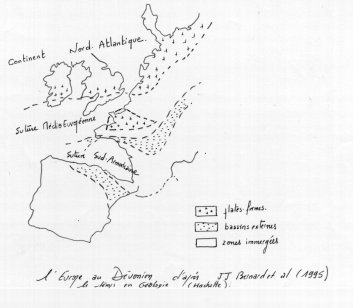 Continent Nord. Atlantique.
Suture Médio Européenne
Suture Sud. Armoricaine
plates-formes.
bassins externes
zones immergées
l'Europe au Dévonien d'après JJ Beinard et al (1995)
le temps en Géologie (Hachette).